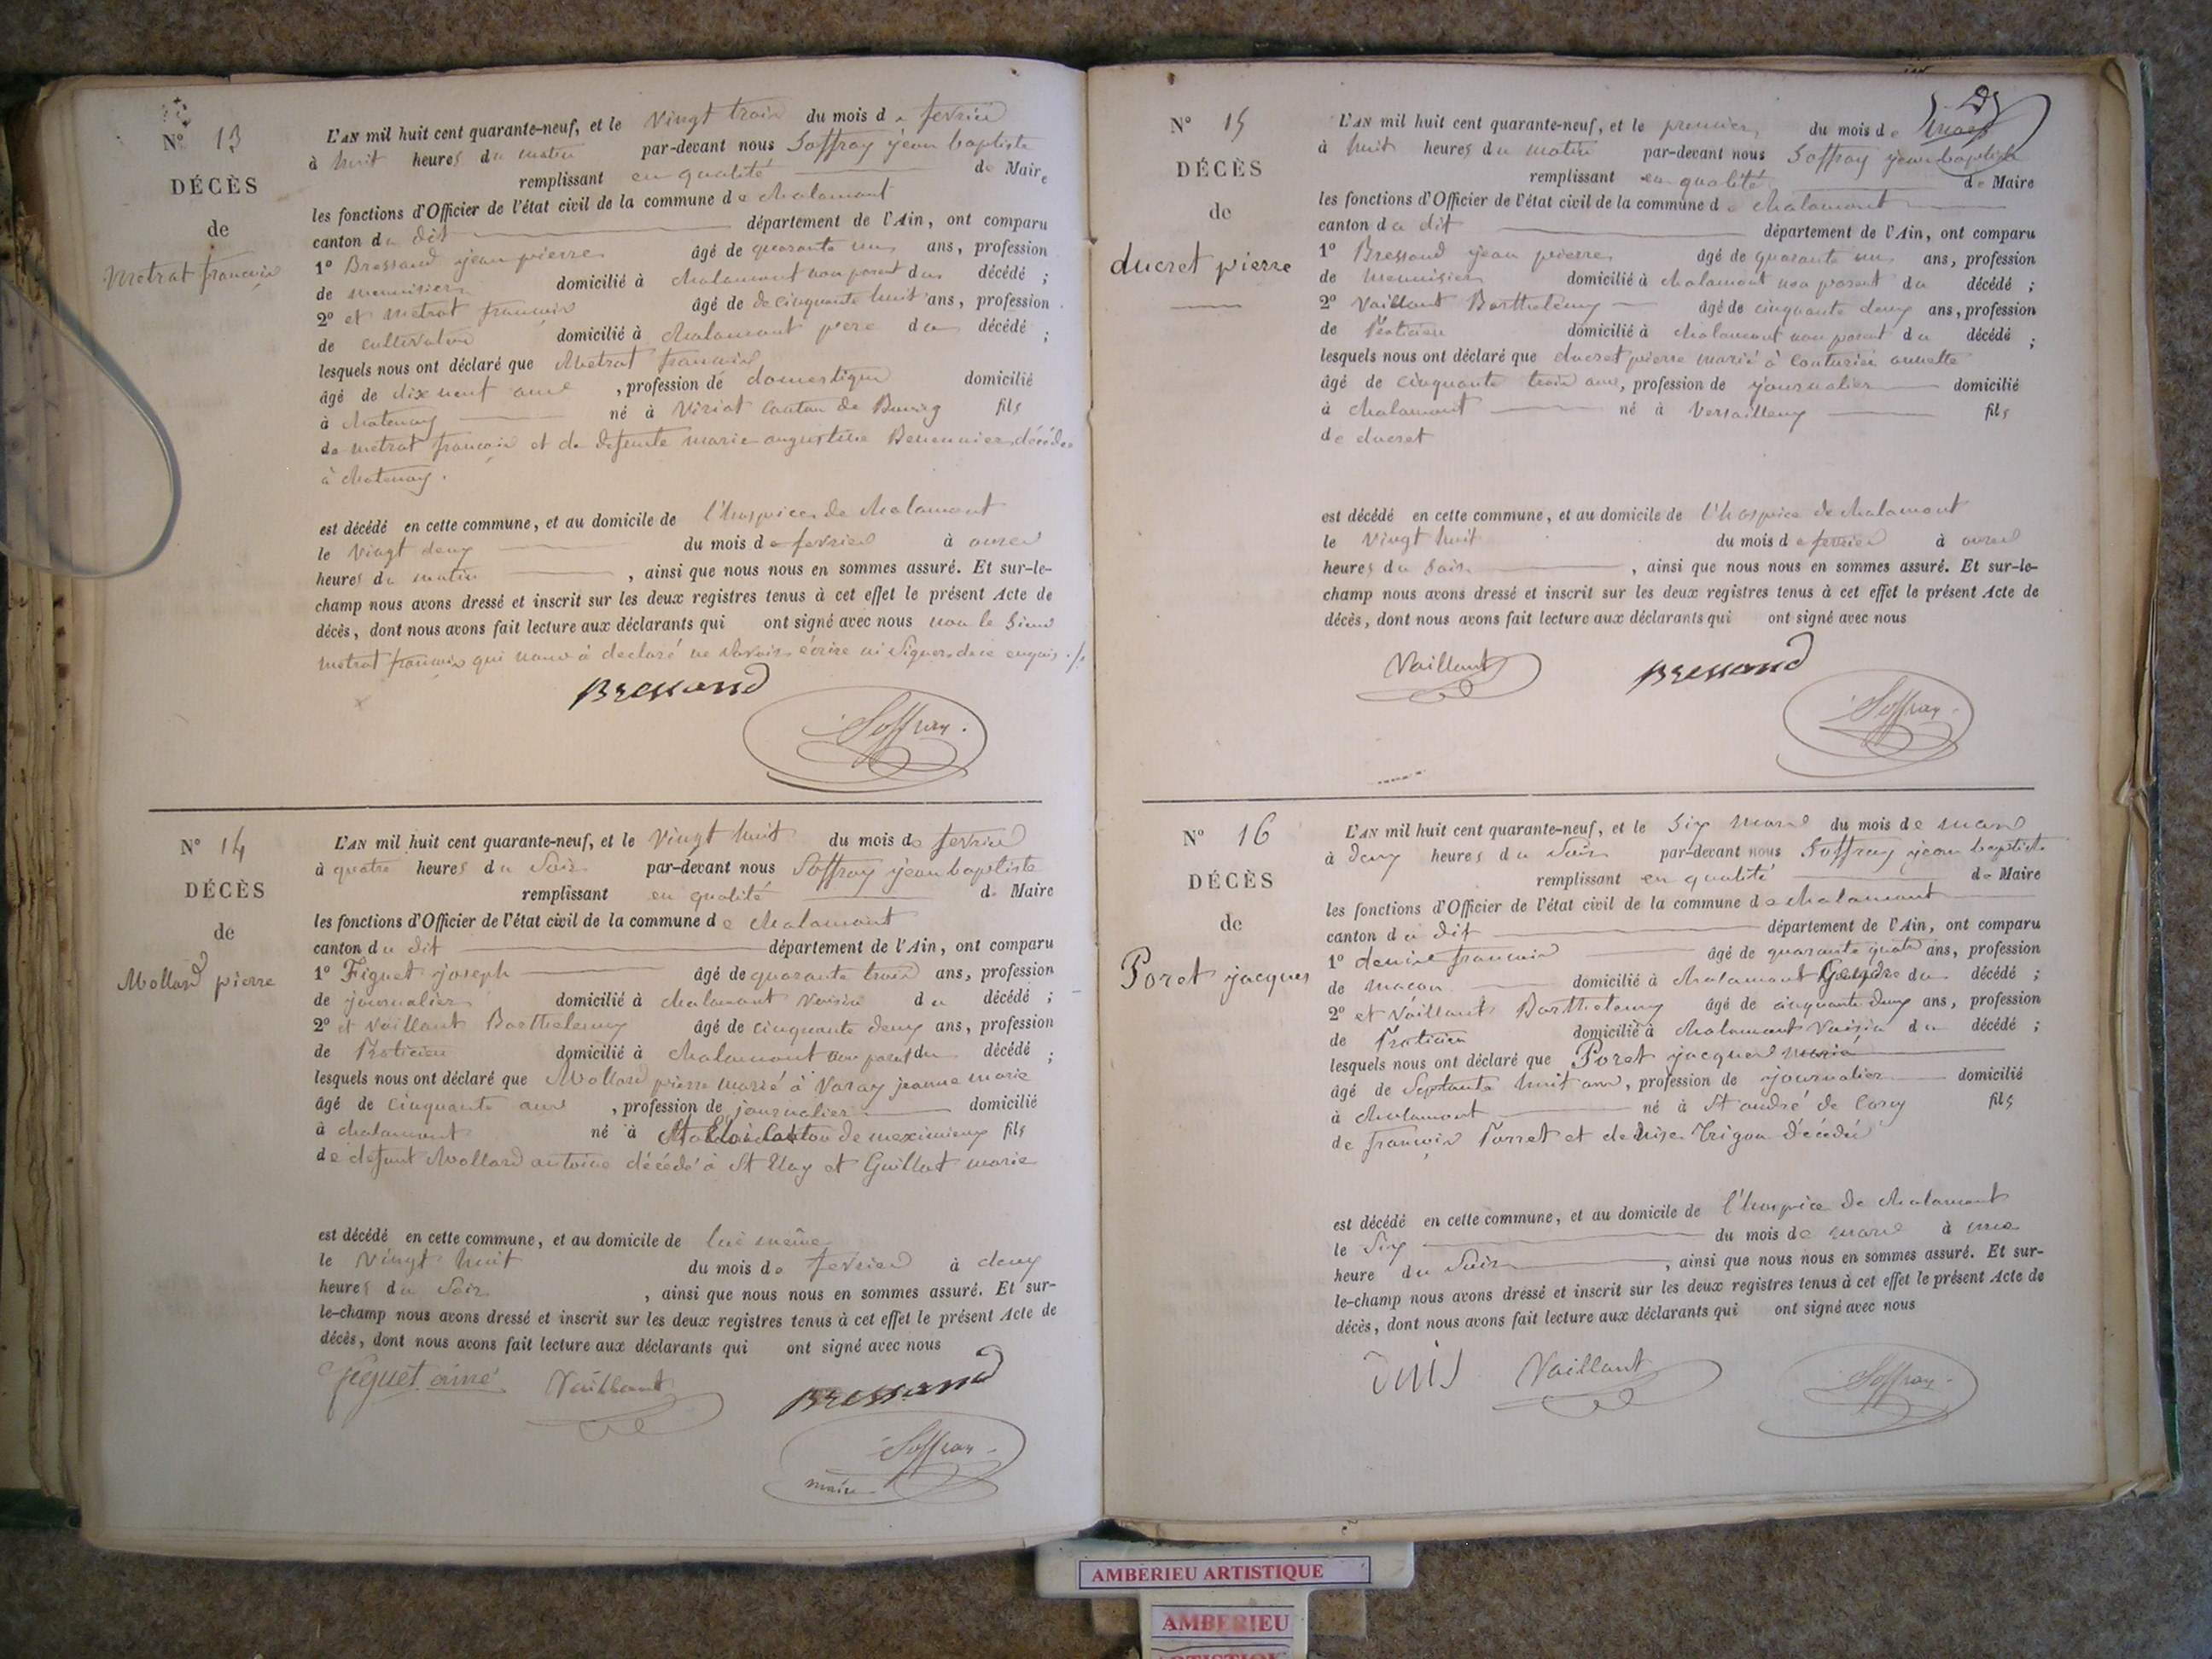 N° 13
DÉCÈS
de
Metrat francois
L'AN mil huit cent quarante-neuf, et le Vingt trois du mois de fevrier
à huit heures du matin par-devant nous Soffray jean baptiste
remplissant en qualité de Maire
les fonctions d'Officier de l'état civil de la commune de chalamont
canton du dit département de l'Ain, ont comparu
1° Bressand jean pierre âgé de quarante un ans, profession
de menuisier domicilié à chalamont non parent du décédé ;
2° et metrat francois âgé de de cinquante huit ans, profession
de cultivateur domicilié à chalamont pere du décédé ;
lesquels nous ont déclaré que Metrat francois
âgé de dix neuf ans , profession de domestique domicilié
à chatenay né à Viriat canton de Bourg fils
de metrat francois et de defunte marie augustine décédée
à chatenay.
est décédé en cette commune, et au domicile de l'hospice de chalamont
le Vingt deux du mois de fevrier à onze
heures du matin , ainsi que nous nous en sommes assuré. Et sur-le-
champ nous avons dressé et inscrit sur les deux registres tenus à cet effet le présent Acte de
décès, dont nous avons fait lecture aux déclarants qui ont signé avec nous non le Sieur
metrat francois qui nous à declaré ne savoir écrire ni signer de ce enquis ./.
Bressand
Soffray
N° 14
DÉCÈS
de
Mollard pierre
L'AN mil huit cent quarante-neuf, et le Vingt huit du mois de fevrier
à quatre heures du Soir par-devant nous Soffray jean baptiste
remplissant en qualité de Maire
les fonctions d'Officier de l'état civil de la commune de chalamont
canton du dit département de l'Ain, ont comparu
1° Figuet joseph âgé de quarante trois ans, profession
de journalier domicilié à chalamont Voisin du décédé ;
2° et Vaillant Barthelemy âgé de cinquante deux ans, profession
de Praticien domicilié à chalamont non parent du décédé ;
lesquels nous ont déclaré que Mollard pierre marié à Varay jeanne marie
âgé de cinquante ans , profession de journalier domicilié
à chalamont né à canton de meximieux fils
de defunt Mollard antoine décédé à St Eloy et Guillot marie
est décédé en cette commune, et au domicile de lui même
le Vingt huit du mois de fevrier à deux
heures du Soir , ainsi que nous nous en sommes assuré. Et sur-
le-champ nous avons dressé et inscrit sur les deux registres tenus à cet effet le présent Acte de
décès, dont nous avons fait lecture aux déclarants qui ont signé avec nous
figuet ainé Vaillant Bressand
Soffray
maire
N° 15
DÉCÈS
de
ducret pierre
L'AN mil huit cent quarante-neuf, et le premier du mois de mars
à huit heures du matin par-devant nous Soffray jean baptiste
remplissant en qualité de Maire
les fonctions d'Officier de l'état civil de la commune de chalamont
canton du dit département de l'Ain, ont comparu
1° Bressand jean pierre âgé de quarante un ans, profession
de menuisier domicilié à chalamont non parent du décédé ;
2° Vaillant Barthelemy âgé de cinquante deux ans, profession
de Praticien domicilié à chalamont non parent du décédé ;
lesquels nous ont déclaré que ducret pierre marié à Couturier annette
âgé de cinquante trois ans, profession de journalier domicilié
à chalamont né à Versailleux fils
de ducret
est décédé en cette commune, et au domicile de l'hospice de chalamont
le Vingt huit du mois de fevrier à onze
heures du Soir , ainsi que nous nous en sommes assuré. Et sur-le-
champ nous avons dressé et inscrit sur les deux registres tenus à cet effet le présent Acte de
décès, dont nous avons fait lecture aux déclarants qui ont signé avec nous
Vaillant Bressand
Soffray
N° 16
DÉCÈS
de
Poret jacques
L'AN mil huit cent quarante-neuf, et le Six mars du mois de mars
à deux heures du Soir par-devant nous Soffray jean baptiste
remplissant en qualité de Maire
les fonctions d'Officier de l'état civil de la commune de chalamont
canton du dit département de l'Ain, ont comparu
1° francois âgé de quarante quatre ans, profession
de macon domicilié à chalamont Gendre du décédé ;
2° et Vaillant Barthelemy âgé de cinquante deux ans, profession
de Praticien domicilié à chalamont Voisin du décédé ;
lesquels nous ont déclaré que Poret jacques marié
âgé de Septante huit ans, profession de journalier domicilié
à chalamont né à St andré de Corcy fils
de francois Porret et de Trigon décédés
est décédé en cette commune, et au domicile de l'hospice de chalamont
le Six du mois de mars à une
heure du Soir , ainsi que nous nous en sommes assuré. Et sur-
le-champ nous avons dressé et inscrit sur les deux registres tenus à cet effet le présent Acte de
décès, dont nous avons fait lecture aux déclarants qui ont signé avec nous
Vaillant Soffray
AMBERIEU ARTISTIQUE
AMBERIEU
ARTISTIQUE